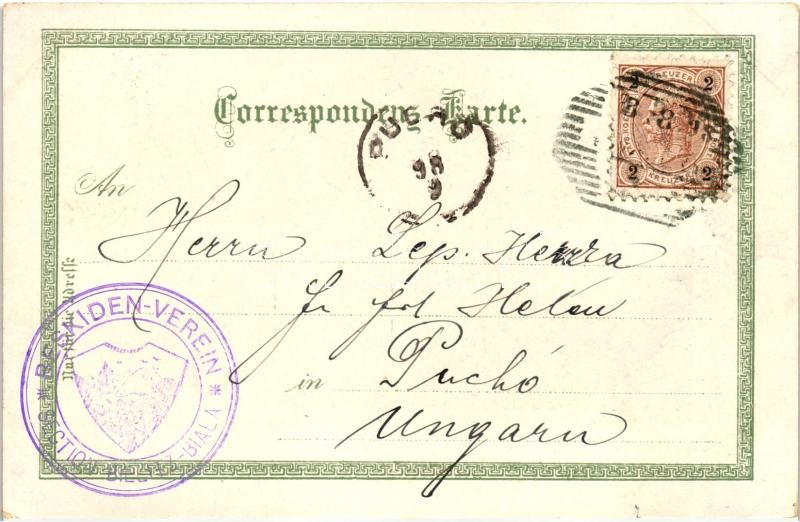 Correspondenz-Karte.
2 KREUZER 2
2 KREUZER 2
PUCHO
98
An
Herrn Lep. Herzra
Helen
in Puchó
Ungarn
Nur für die Adresse
BESKIDEN-VEREIN
* SECTION BIELITZ-BIALA *